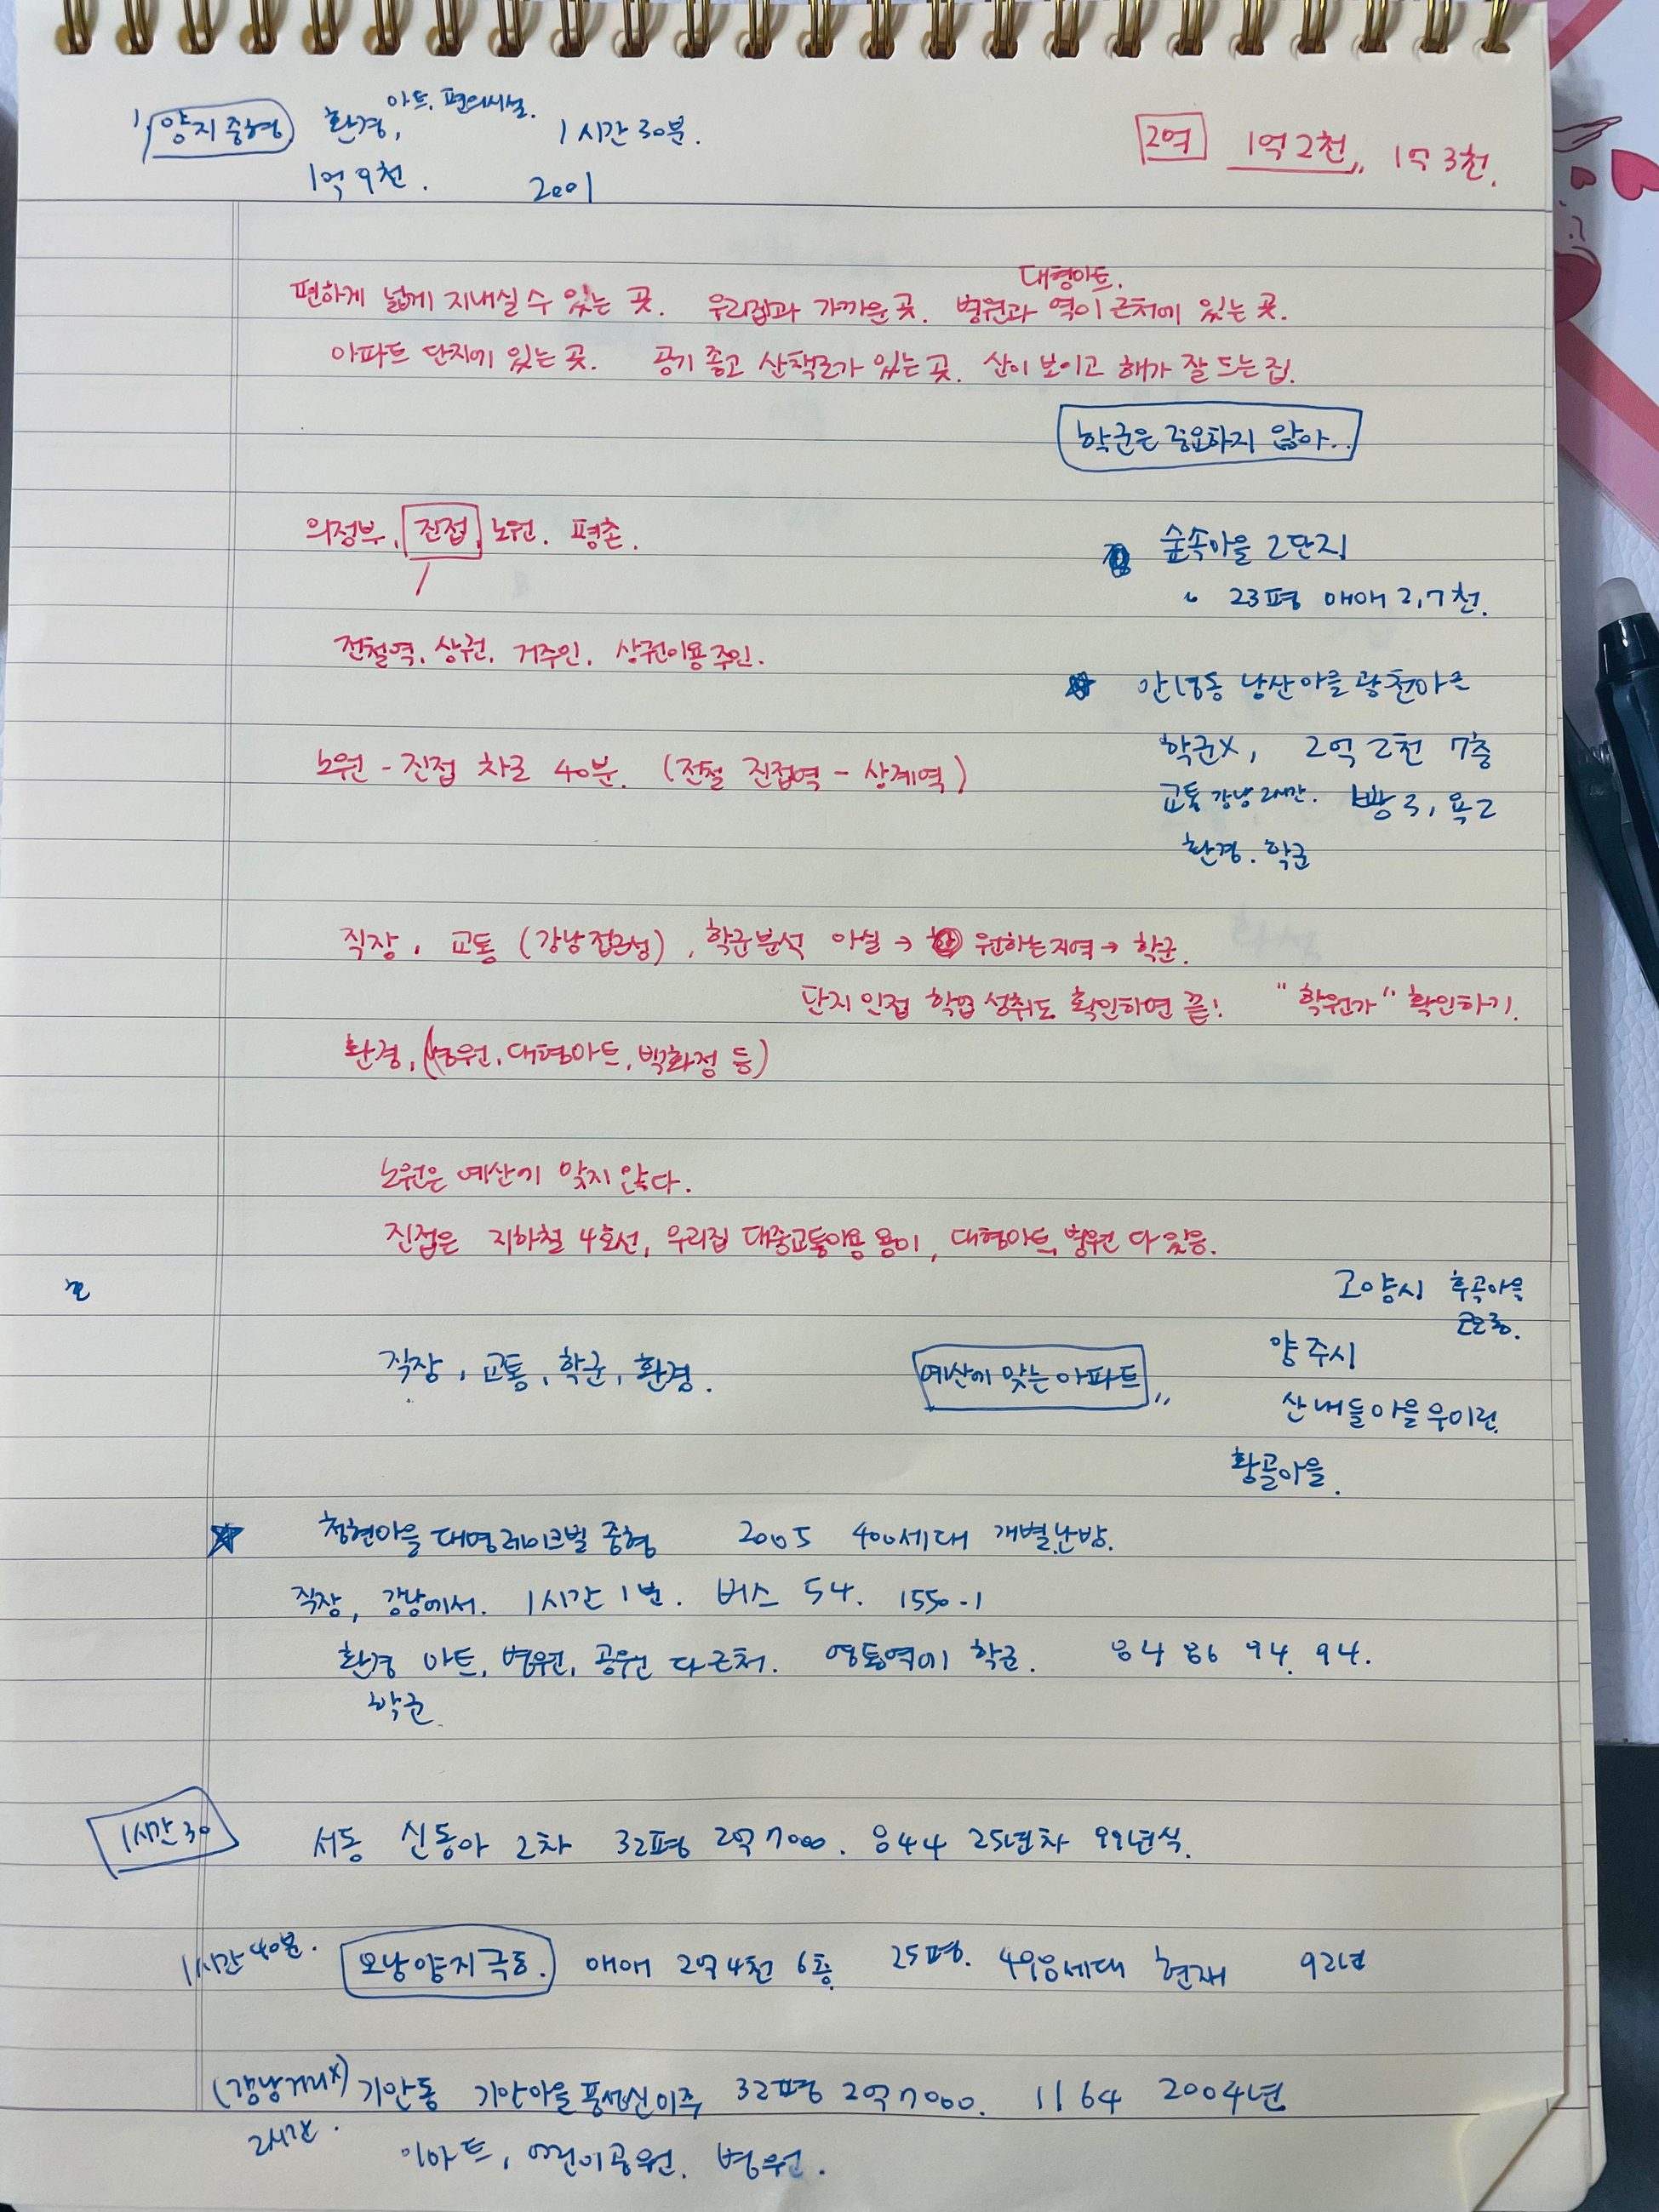 1, 양지중형 환경, 마트. 편의시설. 1시간 30분.
1억 9천. 2001
2억 1억 2천,, 1억 3천.
편하게 넓게 지내실 수 있는 곳. 우리집과 가까운 곳. 병원과 역이 근처에 있는 곳.
대형마트.
아파트 단지에 있는 곳. 공기 좋고 산책로가 있는 곳. 산이 보이고 해가 잘 드는 집.
학군은 중요하지 않아..
의정부, 진접, 노원. 평촌.
숲속마을 2단지
23평 매매 2.7천.
전철역, 상권, 거주인. 상권이용주민.
안녕동 남산마을 광천마르
노원 - 진접 차로 40분. (전철 진접역 - 상계역)
학군X, 2억 2천 7층
교통 강남 2시간. 빵3, 욕2
환경. 학군
직장, 교통 (강남접근성), 학군분석 아실 → 원하는지역 → 학군.
단지 인접 학업성취도 확인하면 끝! "학원가" 확인하기.
환경, (병원, 대형마트, 백화점 등)
노원은 예산이 맞지 않다.
진접은 지하철 4호선, 우리집 대중교통이용 용이, 대형마트, 병원 다 있음.
고양시 후곡마을
코오롱.
직장, 교통, 학군, 환경. 예산에 맞는 아파트,,
양주시
산내들마을우미린
황골마을.
청현마을 대영레이크빌 중형 2005 400세대 개별난방.
직장, 강남에서. 1시간 1분. 버스 54. 1550-1
환경 마트, 병원, 공원 다 근처. 영통역에 학군. 84 86 94. 94.
학군
1시간 30 서동 신동아 2차 32평 2억7000. 844 25년차 99년식.
1시간 40분. 오남양지극동. 매매 2억4천 6층 25평. 498세대 현재 92년
(강남거리X) 기안동 기안마을풍성신미주 32평 2억7000. 1164 2004년
2시간.
이마트, 어린이공원. 병원.